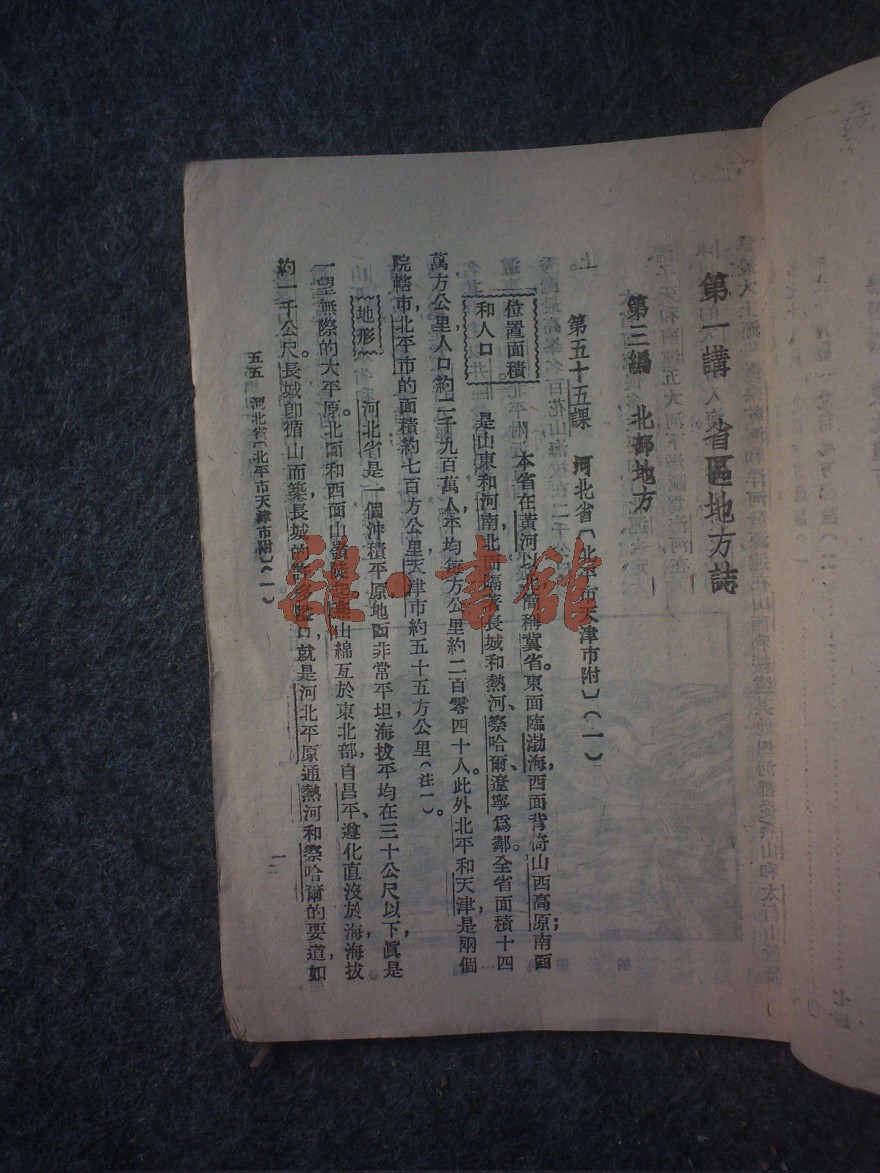 第一講　省區地方誌
第三編　北部地方
第五十五課　河北省〔北平市天津市附〕（一）
位置面積
和人口
本省在黃河以北，簡稱冀省。東面臨渤海，西面背倚山西高原；南面
是山東和河南，北面隔著長城和熱河、察哈爾、遼寧爲鄰。全省面積十四
萬方公里，人口約二千九百萬人，平均每方公里約二百零四十人。此外北平和天津，是兩個
院轄市，北平市的面積約七百方公里，天津市約五十五方公里（注一）。
地形
河北省是一個沖積平原，地面非常平坦，海拔平均在三十公尺以下，眞是
一望無際的大平原。北面和西面山嶺陡起，燕山綿亙於東北部，自昌平、遵化直沒於海，海拔
約一千公尺。長城卽循山而築，長城的許多
就是河北平原通熱河和察哈爾的要道，如
五五　河北省〔北平市天津市附〕（一）
一
雜·書館